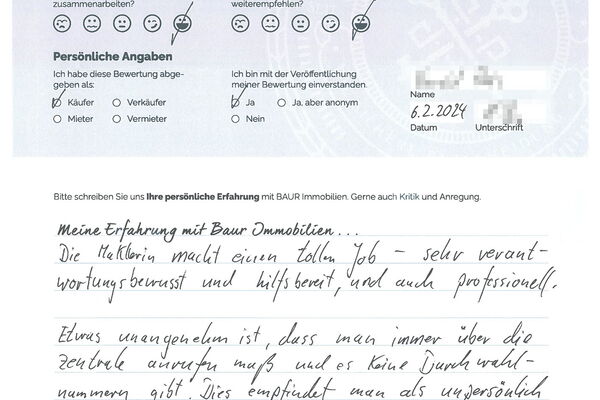 zusammenarbeiten?
weiterempfehlen?
Persönliche Angaben
Ich habe diese Bewertung abge-
geben als:
Käufer
Verkäufer
Mieter
Vermieter
Ich bin mit der Veröffentlichung
meiner Bewertung einverstanden.
Ja
Ja, aber anonym
Nein
Name
6.2.2024
Datum
Unterschrift
Bitte schreiben Sie uns Ihre persönliche Erfahrung mit BAUR Immobilien. Gerne auch Kritik und Anregung.
Meine Erfahrung mit Baur Immobilien...
Die Maklerin macht einen tollen Job – sehr verant-
wortungsbewusst und hilfsbereit, und auch professionell.
Etwas unangenehm ist, dass man immer über die
Zentrale anrufen muß und es keine Durchwahl-
nummern gibt. Dies empfindet man als unpersönlich